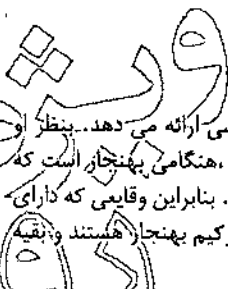 سی ارائه می دهد. بنظر او
، هنگامی بهنجار است که
. بنابراین وقایعی که دارای
رکیم بهنجار هستند و بقیه